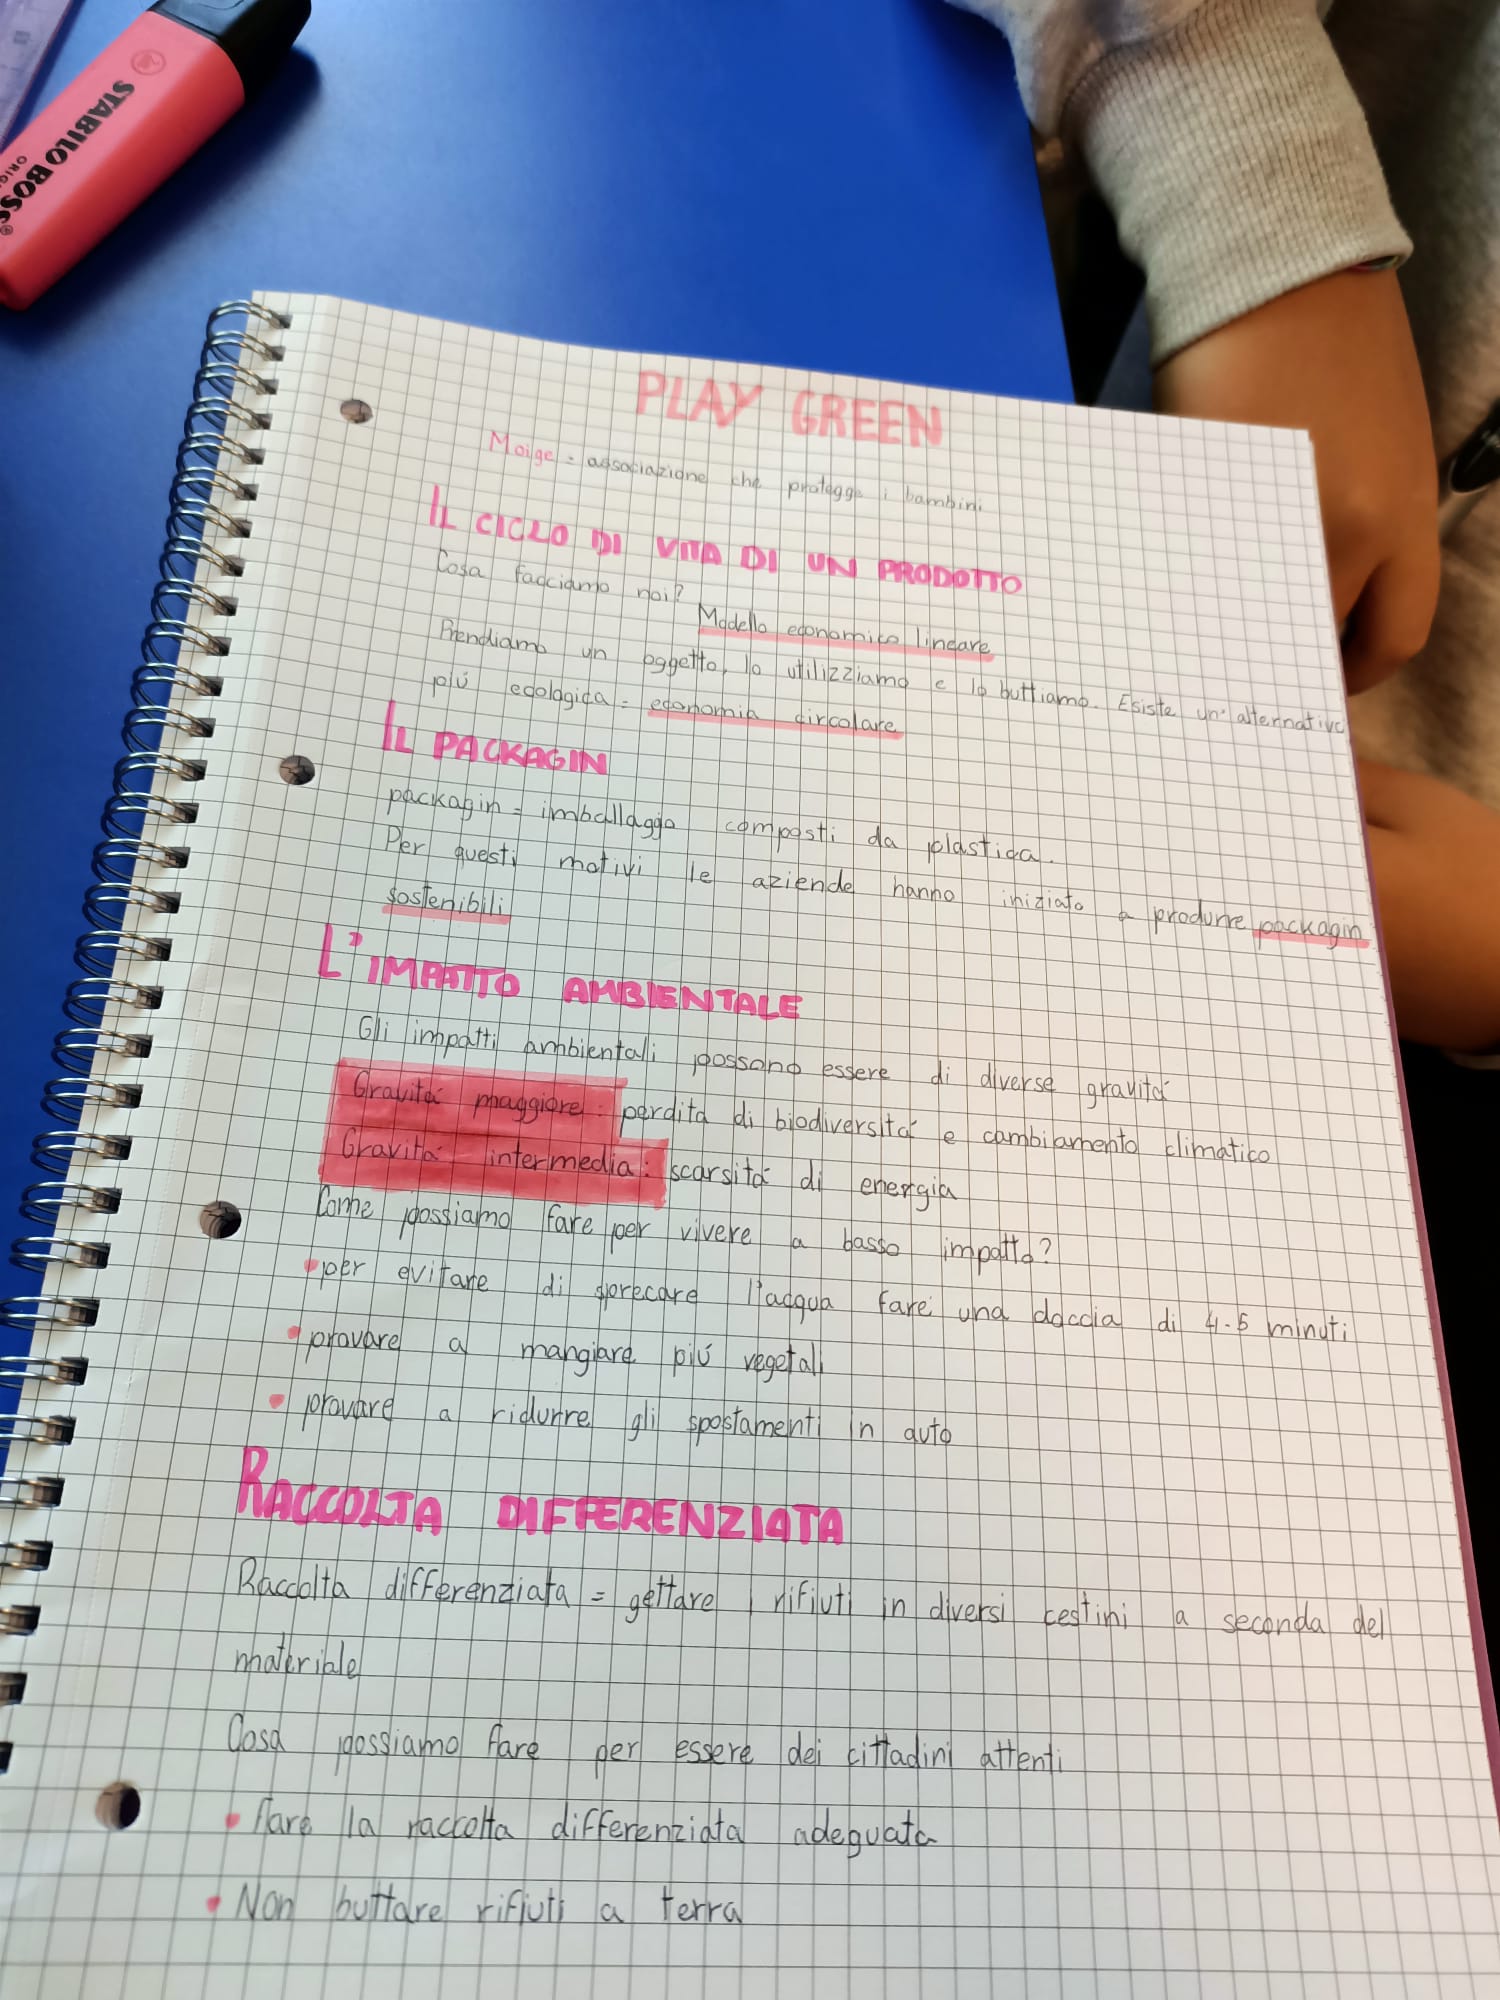 STABILO BOSS
ORIG
PLAY GREEN
Moige = associazione che protegge i bambini
IL CICLO DI VITA DI UN PRODOTTO
Cosa facciamo noi? Modello economico lineare
Prendiamo un oggetto, lo utilizziamo e lo buttiamo. Esiste un'alternativa
più ecologica = economia circolare
IL PACKAGIN
packagin = imballaggo composti da plastica.
Per questi motivi le aziende hanno iniziato a produrre packagin
sostenibili
L'IMPATTO AMBIENTALE
Gli impatti ambientali possono essere di diverse gravità
Gravità maggiore: perdita di biodiversità e cambiamento climatico
Gravità intermedia: scarsità di energia
Come possiamo fare per vivere a basso impatto?
•per evitare di sprecare l'acqua fare una doccia di 4-5 minuti
•provare a mangiare più vegetali
• provare a ridurre gli spostamenti in auto
RACCOLTA DIFFERENZIATA
Raccolta differenziata = gettare i rifiuti in diversi cestini a seconda del
materiale
Cosa possiamo fare per essere dei cittadini attenti
• fare la raccolta differenziata adeguata
• Non buttare rifiuti a terra